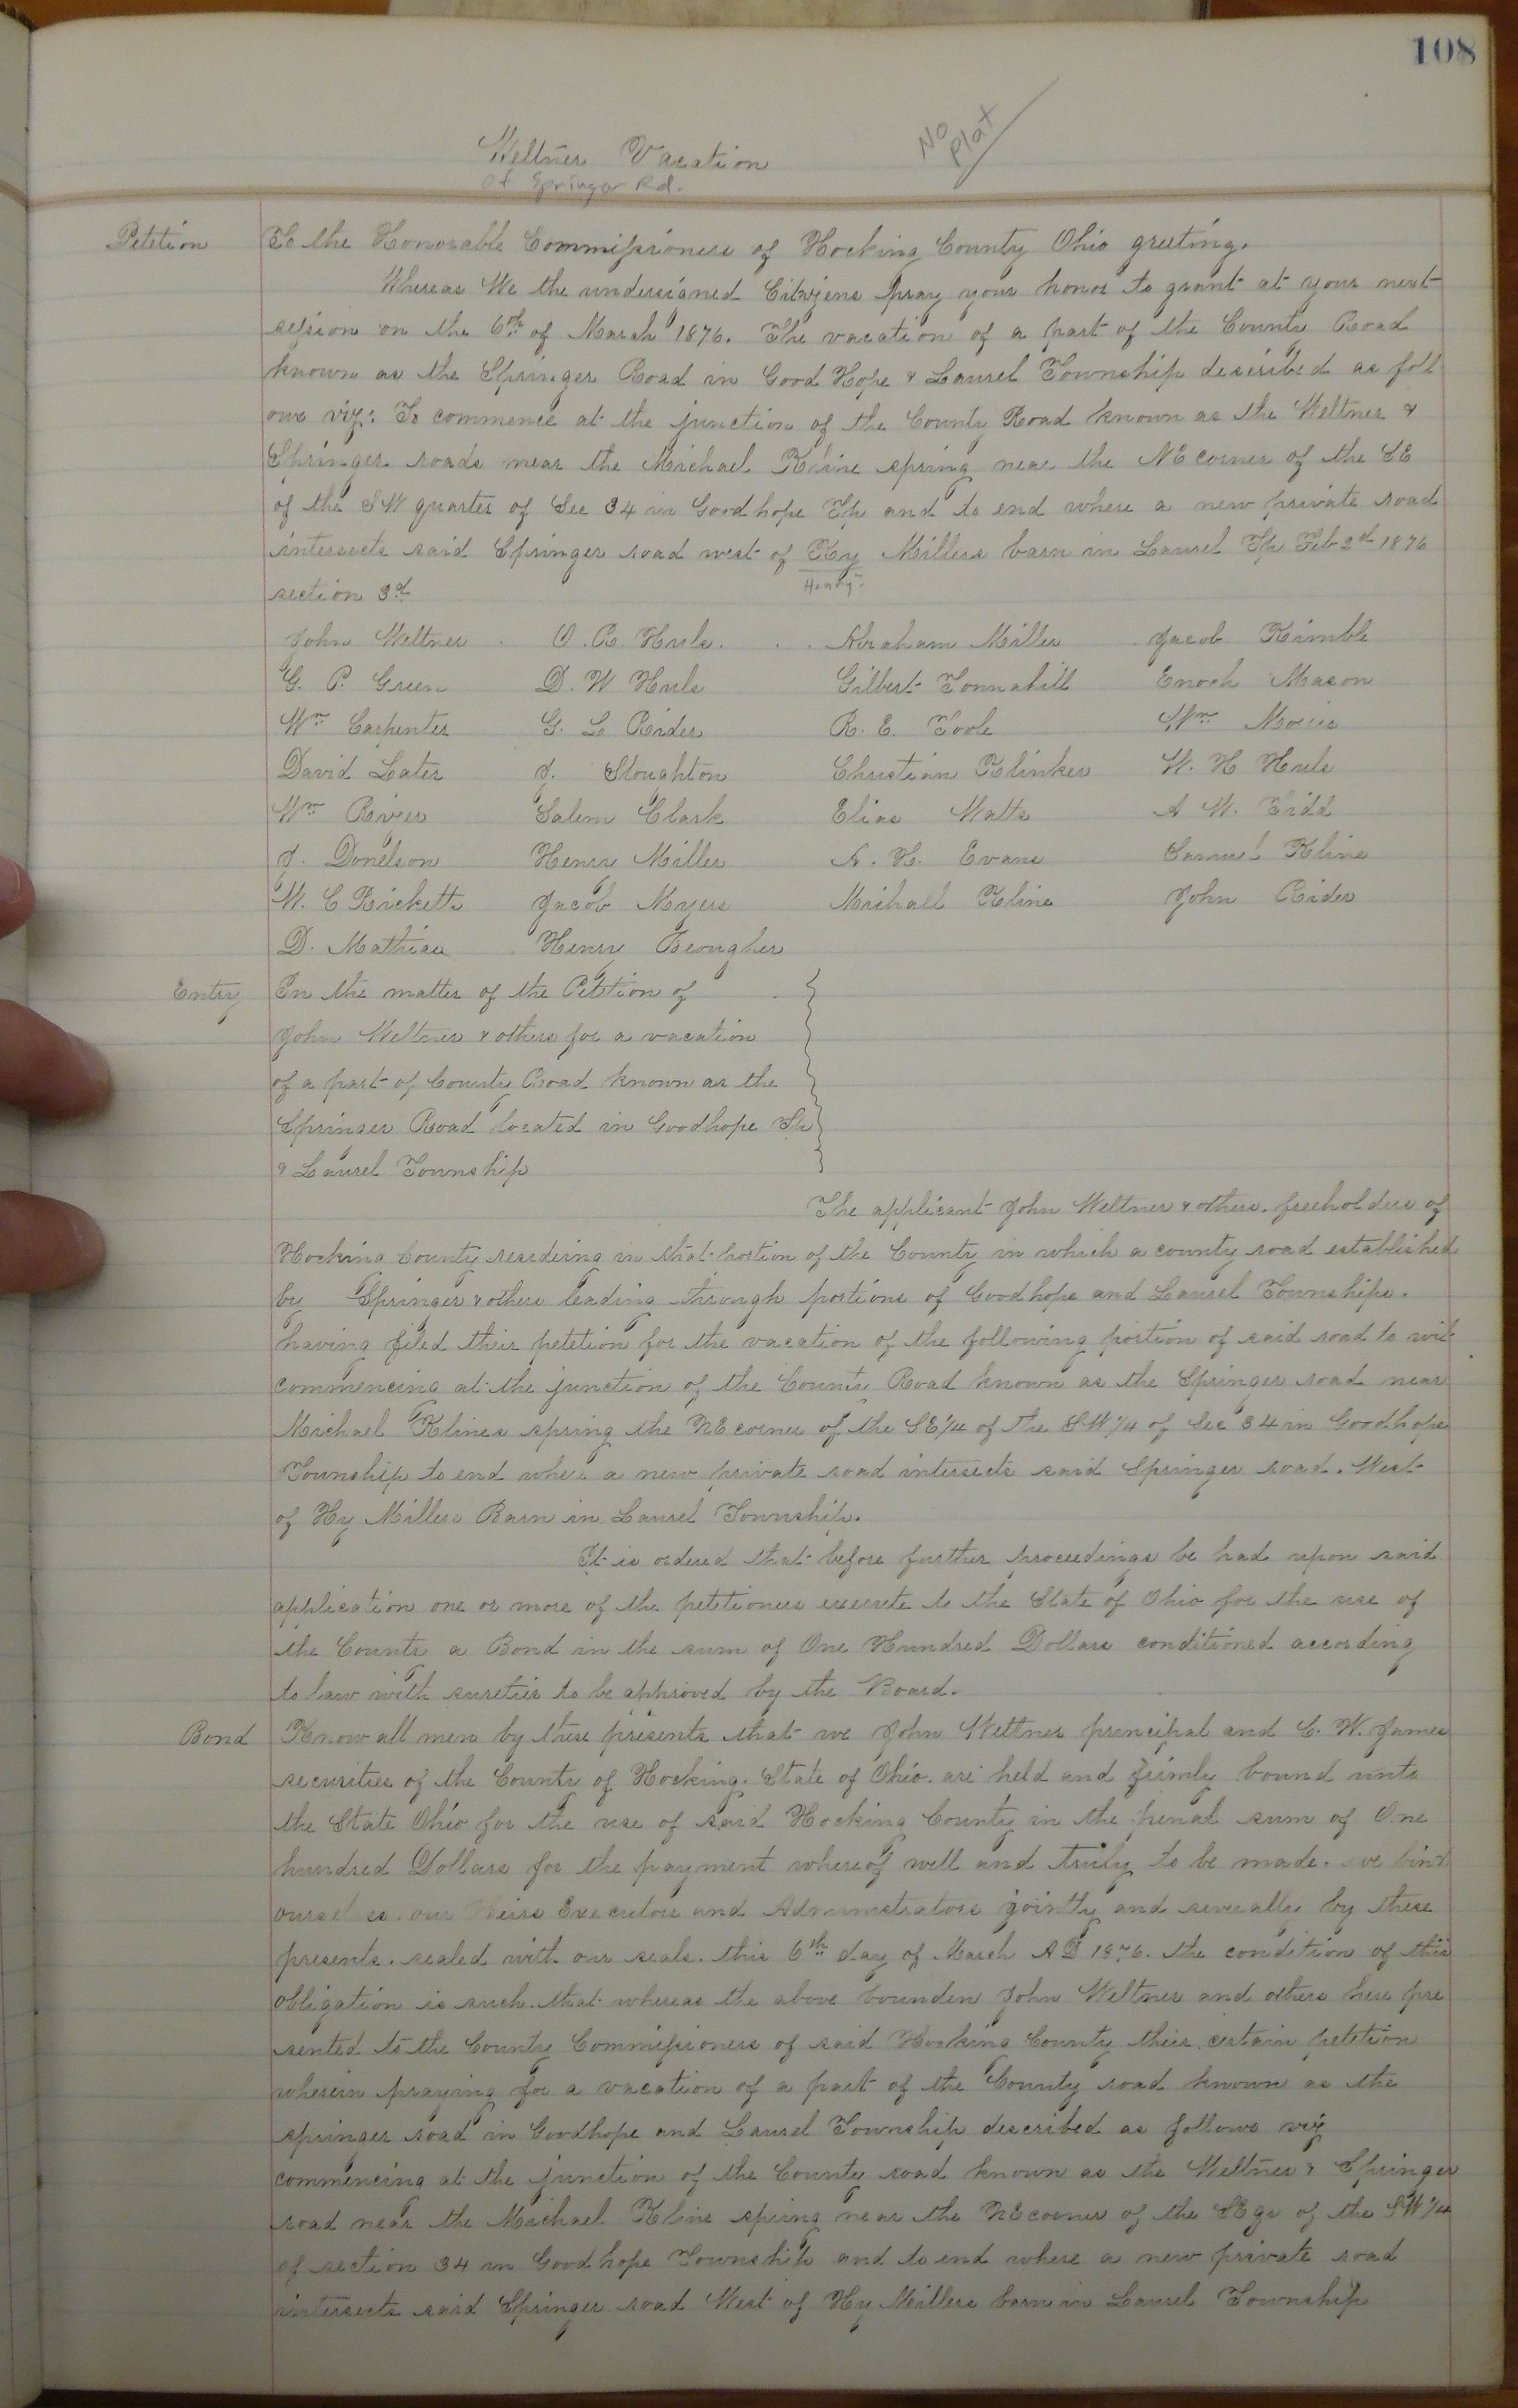 108
No Plat
Weltner Vacation
of Springer Rd.
Petetion
To the Honorable Commissioners of Hocking County Ohio greeting.
Whereas We the undersigned Citizens pray your honor to grant at your next
session on the 6th of March 1876. The vacation of a part of the County Road
known as the Springer Road in Good Hope & Laurel Township described as foll
ows viz: To commence at the junction of the County Road known as the Weltner &
Springer roads near the Michael Kline spring near the NE corner of the SE
of the SW quarter of Sec 34 in Good hope Tp and to end where a new private road
intersects said Springer road west of Hy Millers barn in Laurel Tp Feb 2d 1876
Henry?
section 3d
John Weltner O. R. Huls. Abraham Miller Jacob Kimble
G. P. Green D. W Huls Gilbert Tonnahill Enoch Mason
Wm Carpenter G. L Rider R. E. Toole Wm Morris
David Later J. Stoughton Christian Klinker W. H Huls
Wm River Salem Clark Elias Watts A W. Tidd
J. Donelson Henry Miller A. H. Evans Samuel Kline
W. C Ricketts Jacob Myers Michall Kline John Rider
D. Mathias Henry Beougher
Entry
In the matter of the Petetion of
John Weltner & others for a vacation
of a part of County Road known as the
Springer Road located in Goodhope Tp
& Laurel Township
The applicant John Weltner & others. freeholders of
Hocking County resideing in that portion of the County in which a county road established
by Springer & others leading through portions of Goodhope and Laurel Townships.
having filed their petetion for the vacation of the following portion of said road to wit
commencing at the junction of the County Road known as the Springer road near
Michael Klines spring the NE corner of the SE 1/4 of the SW 1/4 of Sec 34 in Goodhope
Township to end where a new private road intersects said Springer road. West
of Hy Millers Barn in Laurel Township.
It is ordered that before further proceedings be had upon said
application one or more of the petetioners execute to the State of Ohio for the use of
the County a Bond in the sum of One Hundred Dollars conditioned according
to law with sureties to be approved by the Board.
Bond
Know all men by these presents that we John Weltner principal and C. W. James
securities of the County of Hocking. State of Ohio. are held and firmly bound unto
the State Ohio for the use of said Hocking County in the penal sum of One
hundred Dollars for the payment whereof well and truly to be made. we bind
ourselves. our heirs Executors and Administrators jointly and severally by these
presents. sealed with our seals. this 6th day of March AD 1876. the condition of this
obligation is such. that whereas the above bounden John Weltner and others have pre
sented to the County Commissioners of said Hocking County their certain petetion
wherein praying for a vacation of a part of the County road known as the
springer road in Goodhope and Laurel Township described as follows viz
commencing at the junction of the County road known as the Weltner & Springer
road near the Michael Kline spring near the NE corner of the SE qr of the SW 1/4
of section 34 in Good hope Township and to end where a new private road
intersects said Springer road West of Hy Millers barn in Laurel Township